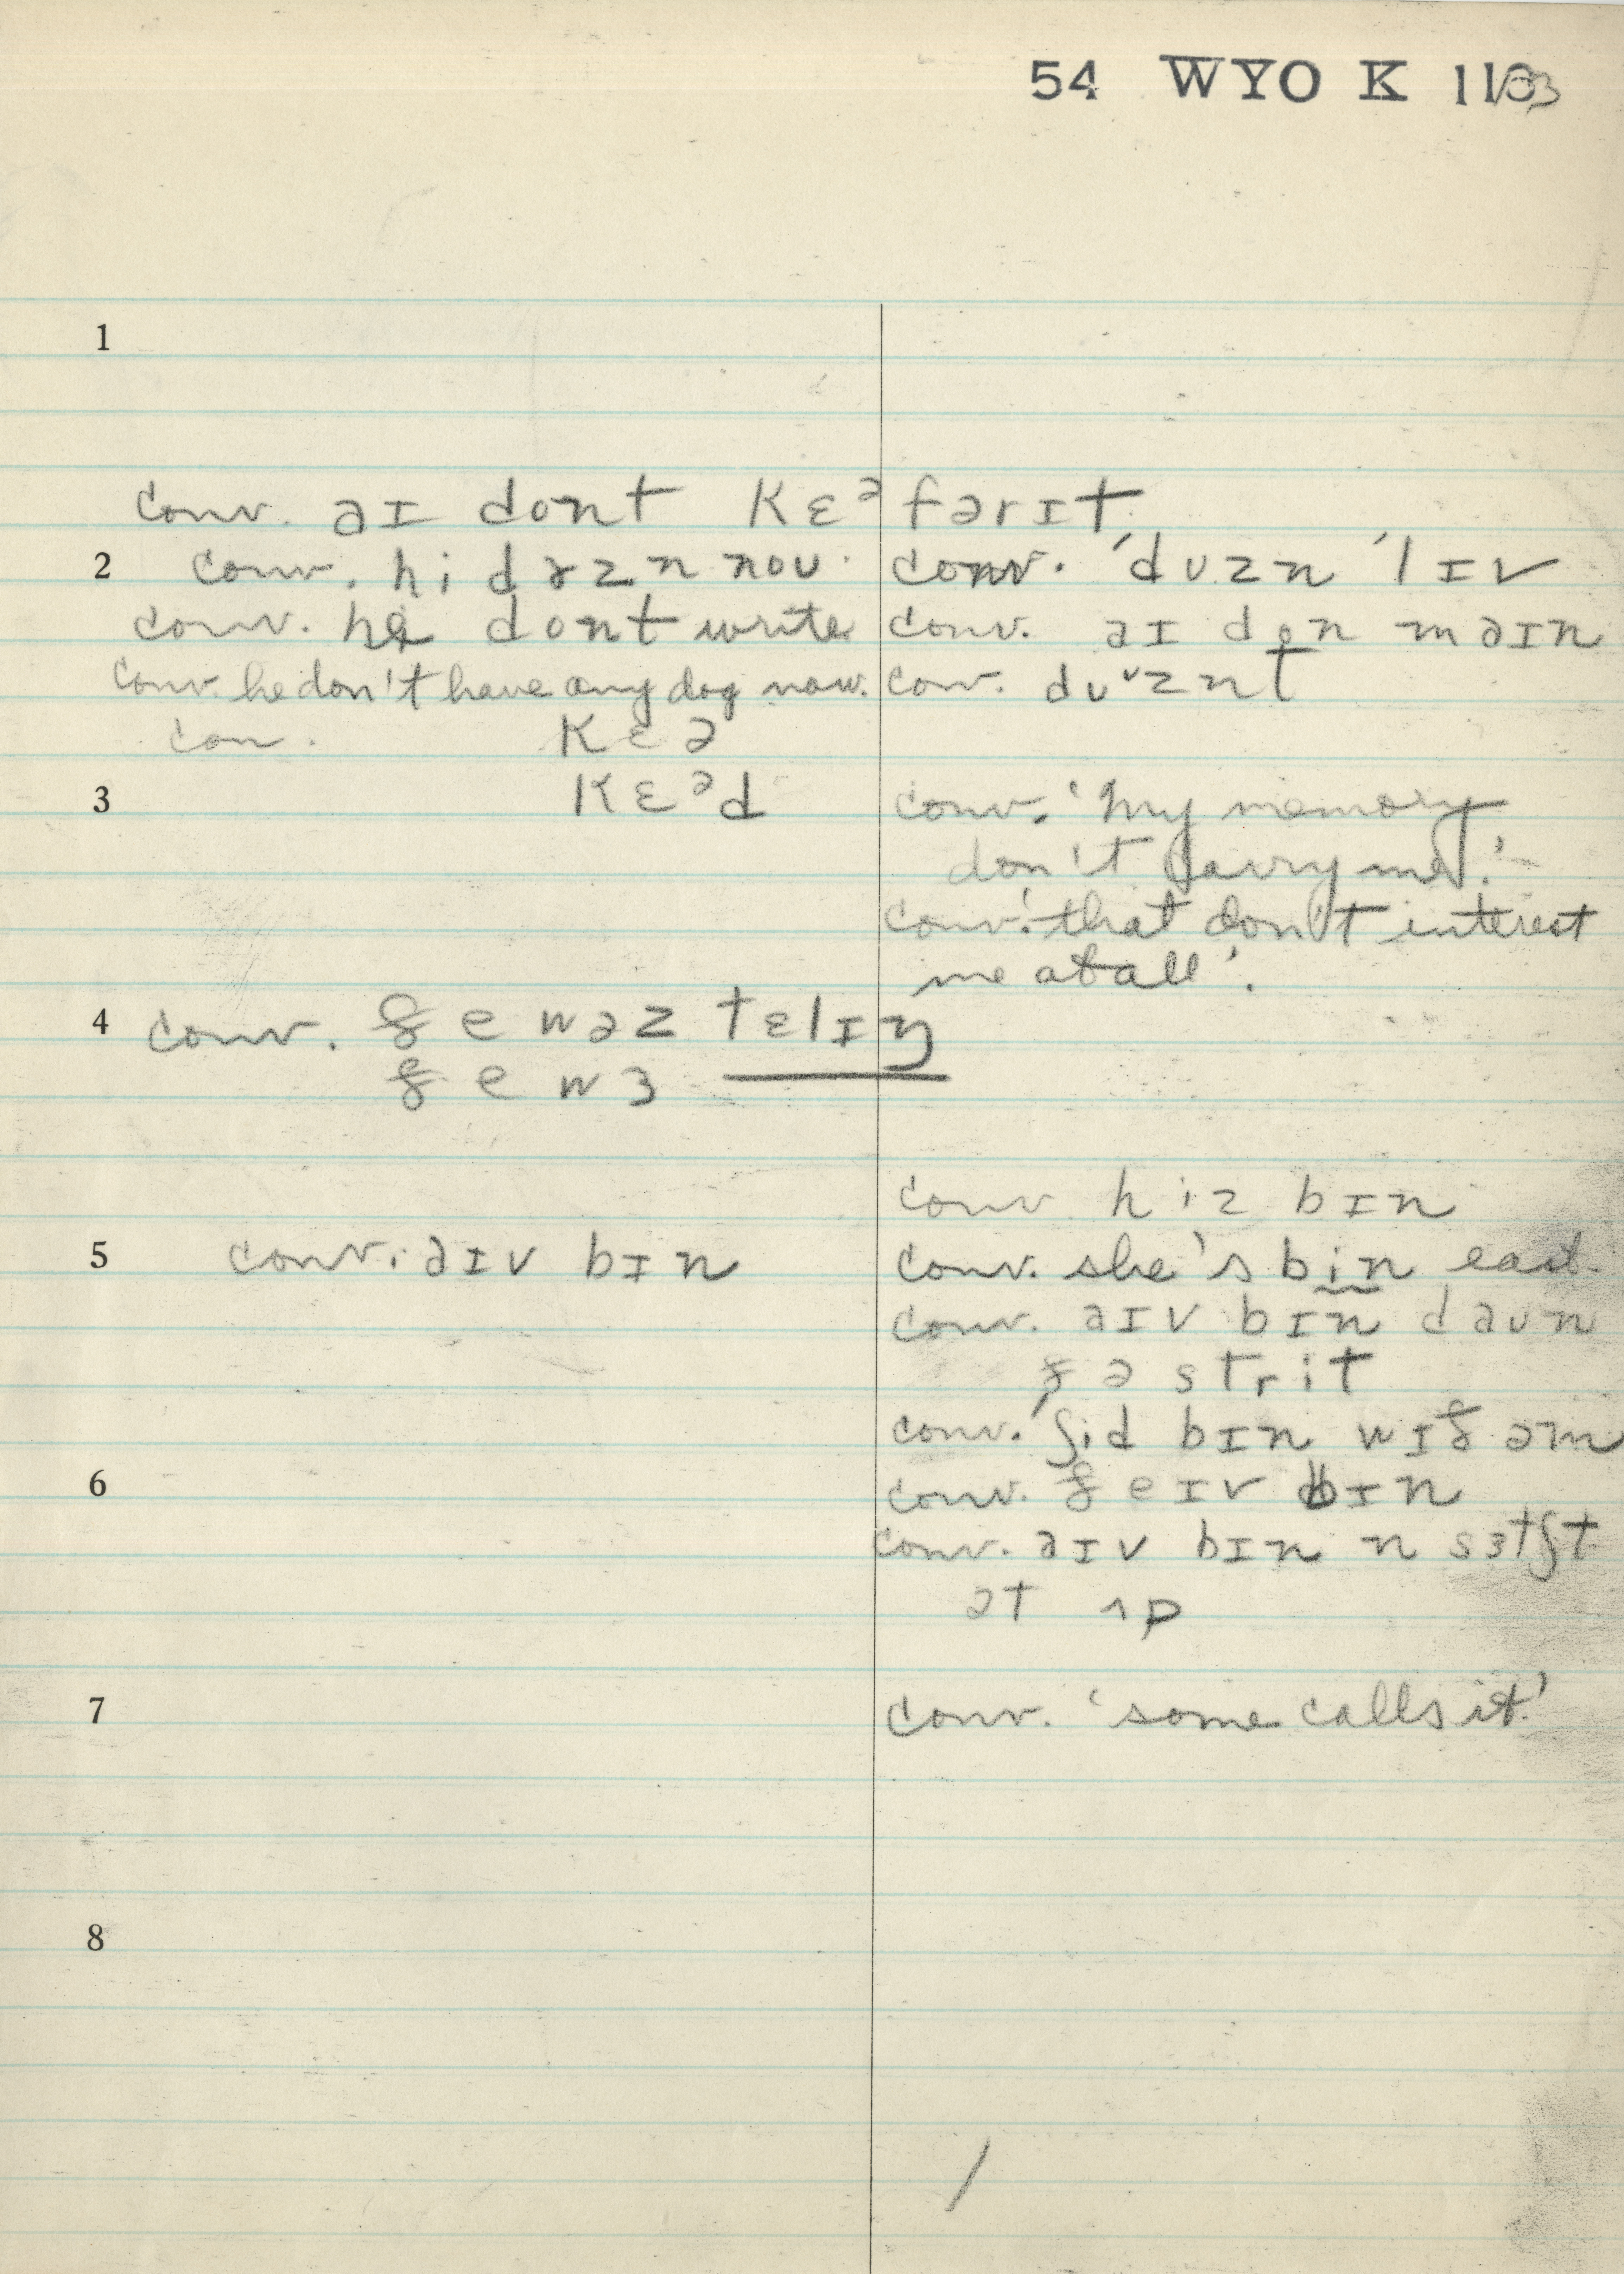 54 WYO K 113
1
conv. aɪ dont kɛᵊ fərɪt
2 conv. hi dɤzn nou. conv. ˈduzn ˈlɪv
conv. he dont write. conv. aɪ don maɪn
conv. he don't have any dog now. conv. duᵛznt
con. kɛə
3 kɛᵊd conv. 'my memory
don't carry me.'
conv. 'that don't interest
me at all'.
4 conv. ðe wəz tɛlɪŋ
ðe wɜ
conv hiz bɪn
5 conv. aɪv bɪn conv. she's bin east.
conv. aɪv bɪn daun
ðə strit
conv. ˈʃid bɪn wɪð əm
6 conv. ðeɪv bɪn
conv. aɪv bɪn n sɜtʃt
ət ʌp
7 conv. 'some calls it.'
8